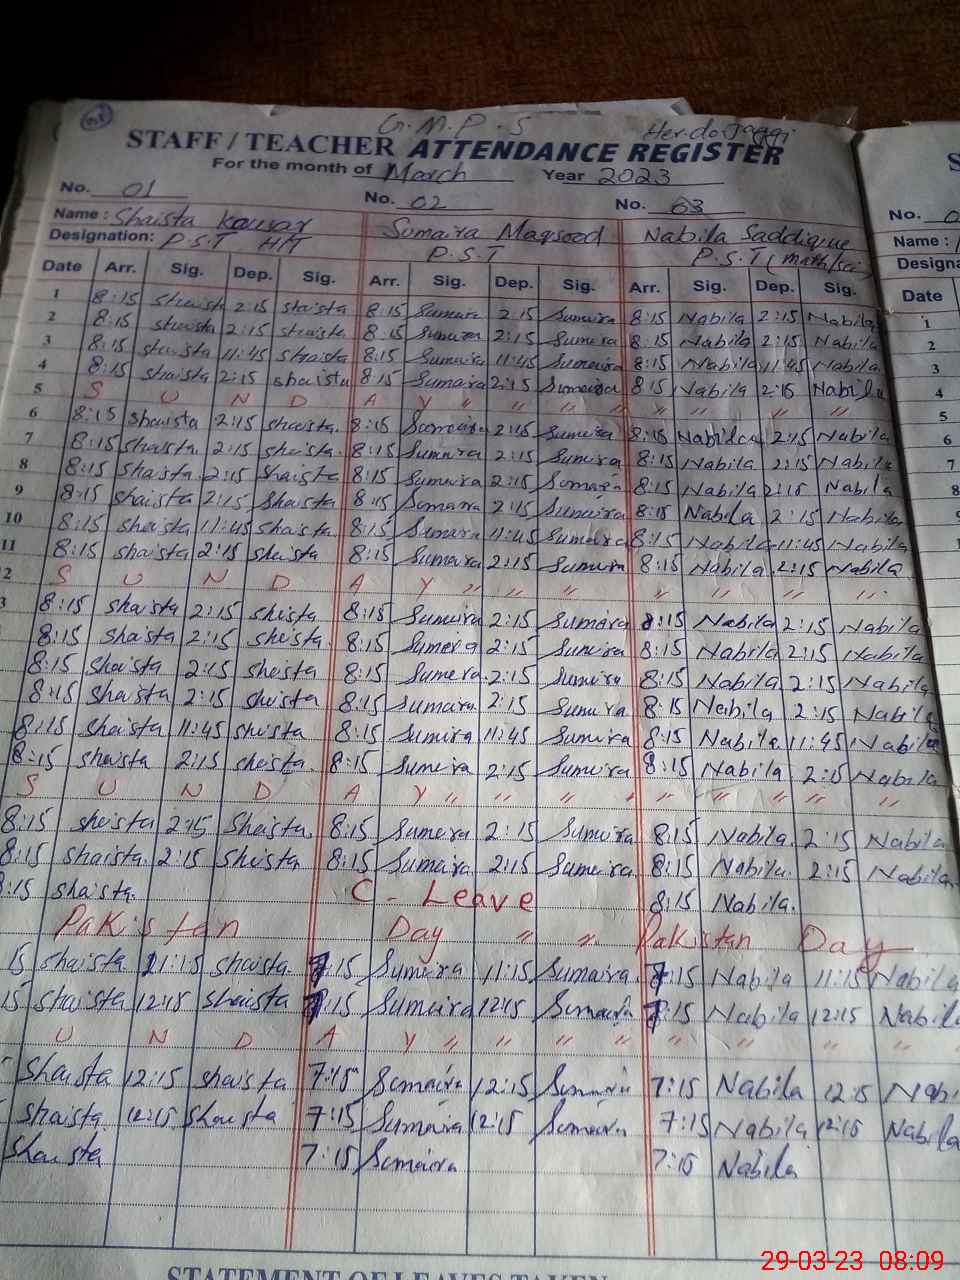 G.M.P.S Herdo Jaggi
STAFF / TEACHER ATTENDANCE REGISTER
For the month of March Year 2023
No. 01 No. 02 No. 03 No. 0
Name : Shaista Kausar Sumaira Maqsood Nabila Saddique Name :
Designation: P.S.T H/T P.S.T P.S.T (math/sci) Designa
Date Arr. Sig. Dep. Sig. Arr. Sig. Dep. Sig. Arr. Sig. Dep. Sig. Date
1 8:15 shaista 2:15 shaista 8:15 Sumaira 2:15 Sumaira 8:15 Nabila 2:15 Nabila 1
2 8:15 shaista 2:15 shaista 8:15 Sumaira 2:15 Sumaira 8:15 Nabila 2:15 Nabila 2
3 8:15 shaista 11:45 shaista 8:15 Sumaira 11:45 Sumaira 8:15 Nabila 11:45 Nabila 3
4 8:15 shaista 2:15 shaista 8:15 Sumaira 2:15 Sumaira 8:15 Nabila 2:15 Nabila 4
5 S U N D A Y " " " " " " " 5
6 8:15 shaista 2:15 shaista. 8:15 Sumaira 2:15 Sumaira 8:15 Nabila 2:15 Nabila 6
7 8:15 shaista. 2:15 shaista. 8:15 Sumaira 2:15 Sumaira 8:15 Nabila 2:15 Nabila 7
8 8:15 shaista. 2:15 shaista 8:15 Sumaira 2:15 Sumaira 8:15 Nabila 2:15 Nabila 8
9 8:15 shaista 2:15 shaista 8:15 Sumaira 2:15 Sumaira 8:15 Nabila 2:15 Nabila
10 8:15 shaista 11:45 shaista. 8:15 Sumaira 11:45 Sumaira 8:15 Nabila 11:45 Nabila
11 8:15 shaista 2:15 shaista 8:15 Sumaira 2:15 Sumaira 8:15 Nabila 2:15 Nabila
2 S U N D A Y " " " " " " "
3 8:15 shaista 2:15 shaista 8:15 Sumaira 2:15 Sumaira 8:15 Nabila 2:15 Nabila
8:15 shaista 2:15 shaista 8:15 Sumera 2:15 Sumaira 8:15 Nabila 2:15 Nabila
8:15 shaista 2:15 shaista 8:15 Sumera 2:15 Sumaira 8:15 Nabila 2:15 Nabila
8:15 shaista 2:15 shaista 8:15 Sumaira 2:15 Sumaira 8:15 Nabila 2:15 Nabila
8:15 shaista 11:45 shaista 8:15 Sumaira 11:45 Sumaira 8:15 Nabila 11:45 Nabila
8:15 shaista 2:15 shaista 8:15 Sumaira 2:15 Sumaira 8:15 Nabila 2:15 Nabila
S U N D A Y " " " " " " " "
8:15 shaista 2:15 Shaista. 8:15 Sumera 2:15 Sumaira 8:15 Nabila 2:15 Nabila
8:15 shaista. 2:15 Shaista 8:15 Sumaira 2:15 Sumaira 8:15 Nabila. 2:15 Nabila.
8:15 shaista. C - Leave 8:15 Nabila.
Pakistan Day " " Pakistan Day
15 shaista 11:15 shaista. 7:15 Sumeira 11:15 Sumaira. 7:15 Nabila 11:15 Nabila
15 shaista 12:15 shaista 7:15 Sumeira 12:15 Sumaira 7:15 Nabila 12:15 Nabil
U N D A Y " " " " " " " "
Shaista 12:15 shaista. 7:15 Sumaira 12:15 Sumaira 7:15 Nabila 12:15 Nabi
shaista. 12:15 Shaista 7:15 Sumaira 12:15 Sumaira 7:15 Nabila 12:15 Nabila
Shaista 7:15 Sumaira 7:15 Nabila
STATEMENT OF LEAVES TAKEN
29-03-23 08:09